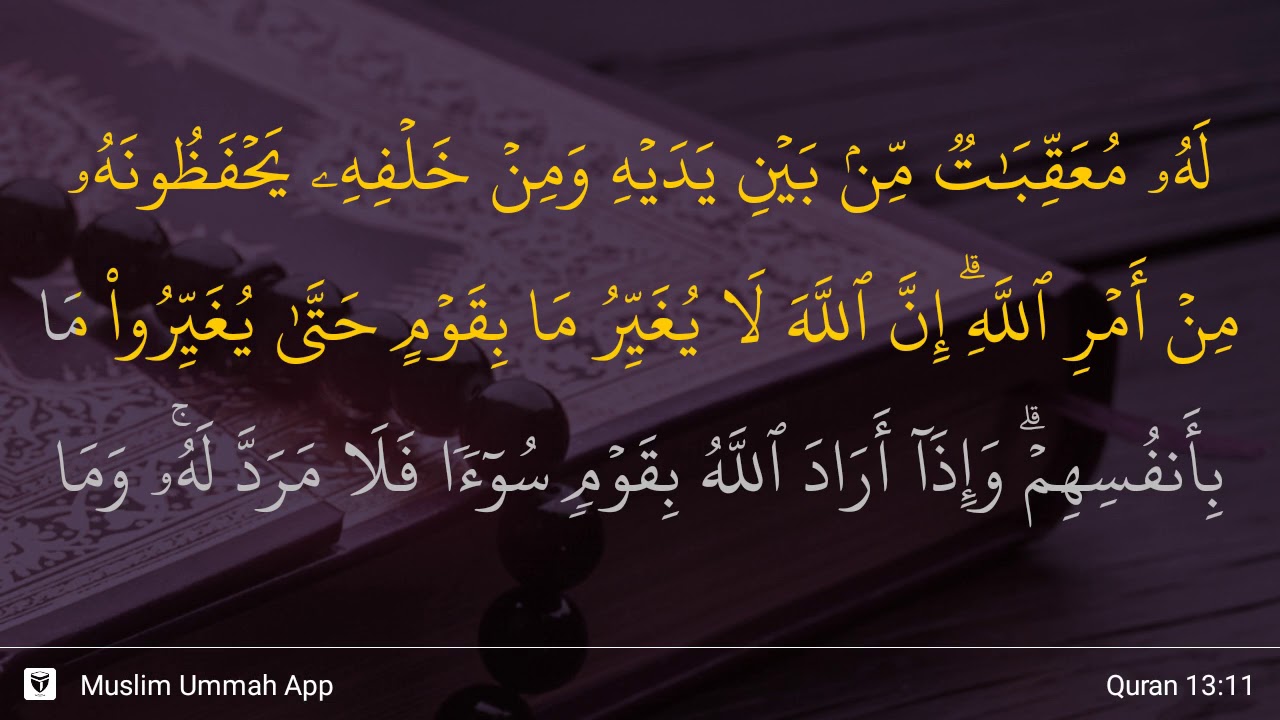 لَهُۥ مُعَقِّبَـٰتٌۭ مِّنۢ بَيْنِ يَدَيْهِ وَمِنْ خَلْفِهِۦ يَحْفَظُونَهُۥ
مِنْ أَمْرِ ٱللَّهِ ۗ إِنَّ ٱللَّهَ لَا يُغَيِّرُ مَا بِقَوْمٍ حَتَّىٰ يُغَيِّرُوا۟ مَا
بِأَنفُسِهِمْ ۗ وَإِذَآ أَرَادَ ٱللَّهُ بِقَوْمٍۢ سُوٓءًۭا فَلَا مَرَدَّ لَهُۥ ۚ وَمَا
Muslim Ummah App
Quran 13:11